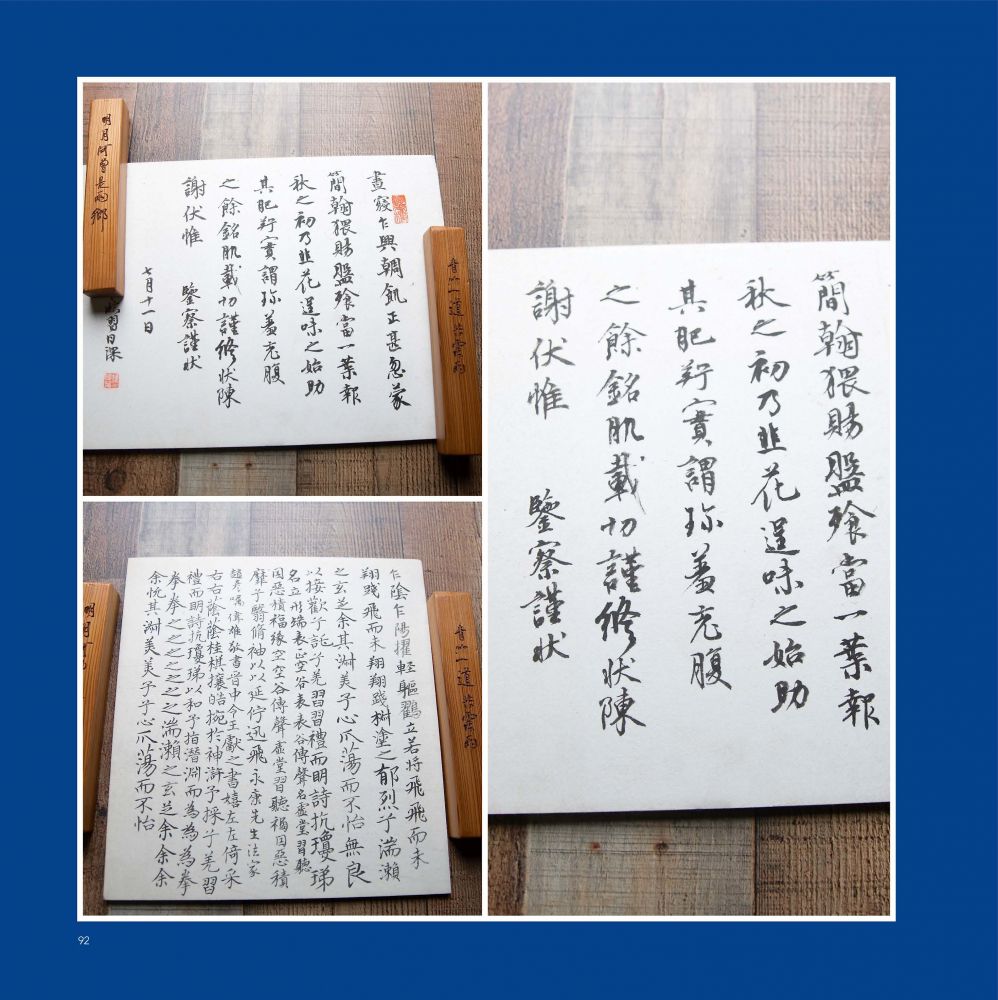 明月何曾是兩鄉
晝寢乍興輖飢正甚忽蒙
簡翰猥賜盤飱當一葉報
秋之初乃韭花逞味之始助
其肥羜實謂珍羞充腹
之餘銘肌載切謹修狀陳
謝伏惟 鑒察謹狀
七月十一日
習日課
青山一道共雲雨
簡翰猥賜盤飱當一葉報
秋之初乃韭花逞味之始助
其肥羜實謂珍羞充腹
之餘銘肌載切謹修狀陳
謝伏惟 鑒察謹狀
乍陰乍陽擢輕軀鶴立若將飛飛而未
翔踐飛而未翔翔踐樹塗之郁烈予湍瀨
之玄芝余其淑美子心爪蕩而不怡無良
以接歡予子羌習習禮而明詩抗瓊珶
名立形端表正空谷表表谷傳聲名虛堂習聽
因惡積福緣空空谷傳聲虛堂習聽禍因惡積
靡予翳脩袖以以延佇迅飛永康先生法家
偉雄敬書晉中令王獻之書嬉左左倚采
右右蔭蔭桂棋攘皓捥於神滸予採予羌習
禮而明詩抗瓊珶以和予指潛淵而為為為拳
拳拳之之之之之之湍瀨之玄芝余余余
余悅其淑美美子心爪蕩而不怡
明月
青山一道共雲雨
92